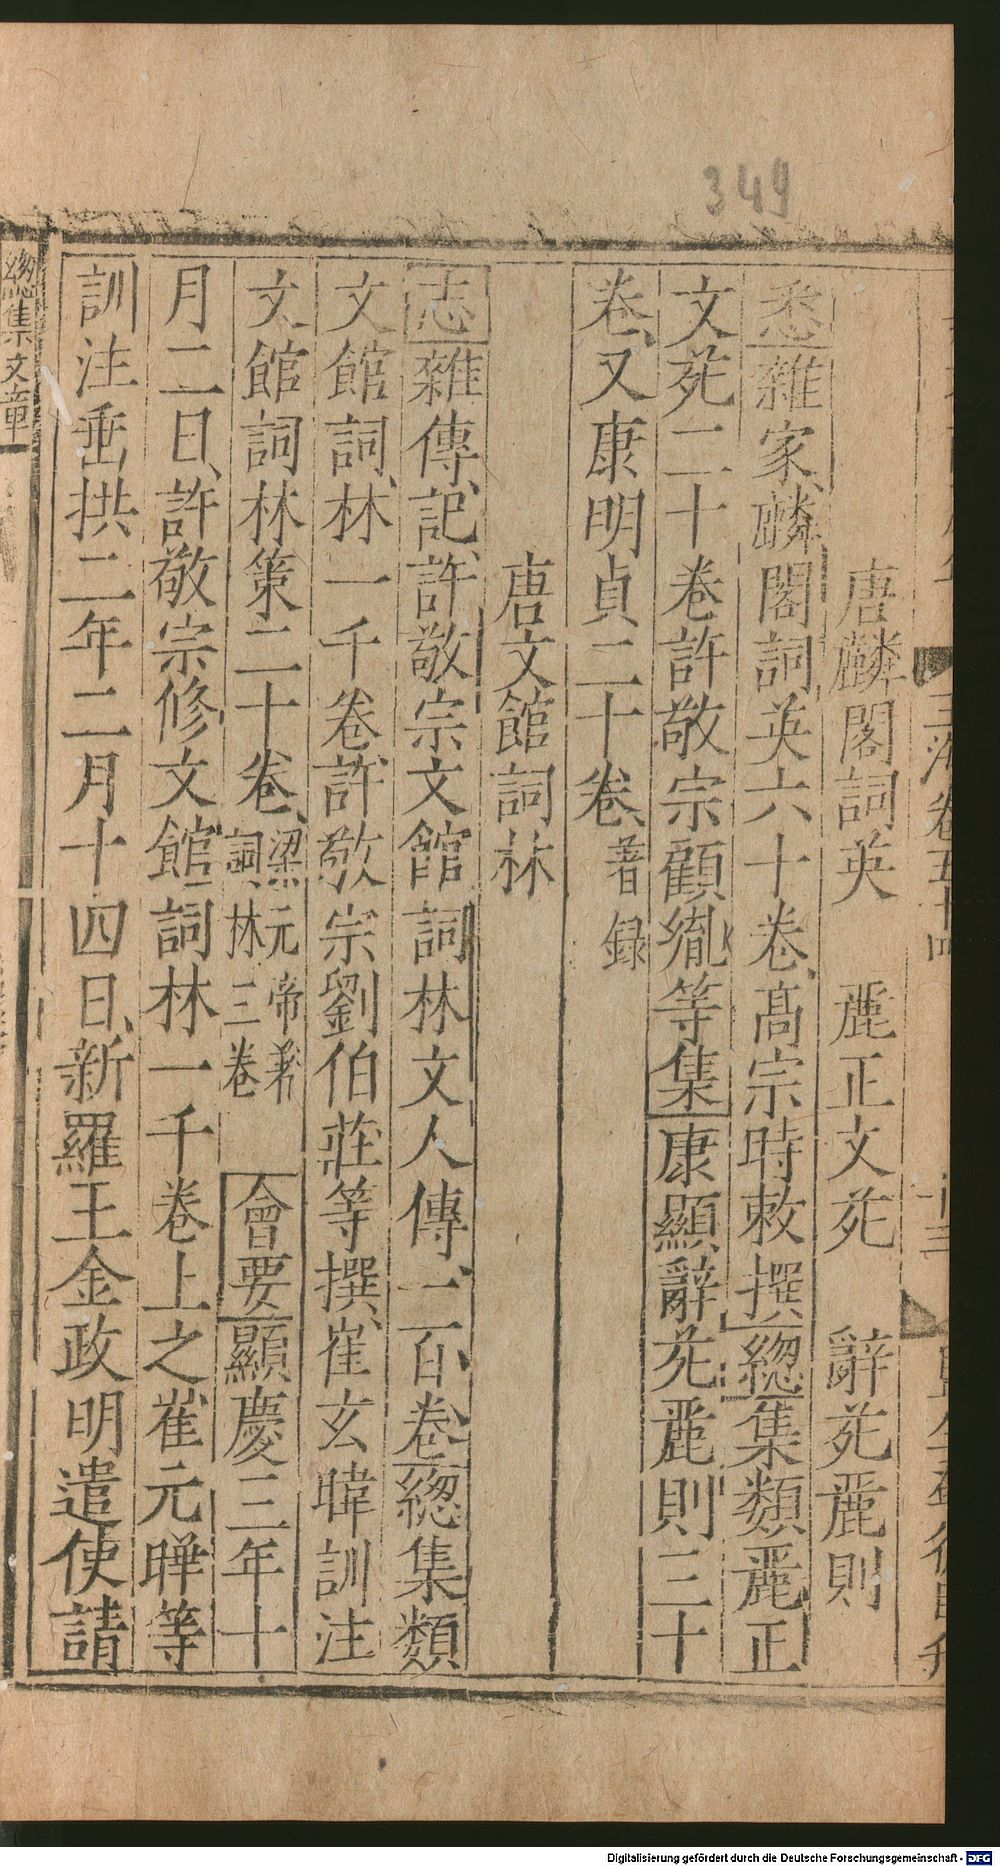 349
唐麟閣詞英　麗正文苑　辭苑麗則
悉雜家麟閣詞英六十卷髙宗時敕撰總集類麗正
文苑二十卷許敬宗顧胤等集康顯辭苑麗則三十
卷又康明貞二十卷著録
唐文館詞林
志雜傳記許敬宗文館詞林文人傳一百卷總集類
文館詞林一千卷許敬宗劉伯莊等撰崔玄暐訓注
文館詞林策二十卷梁元帝著詞林三卷會要顯慶三年十
月二日許敬宗修文館詞林一千卷上之崔元暐等
訓注垂拱二年二月十四日新羅王金政明遣使請
總集文章
Digitalisierung gefördert durch die Deutsche Forschungsgemeinschaft - DFG